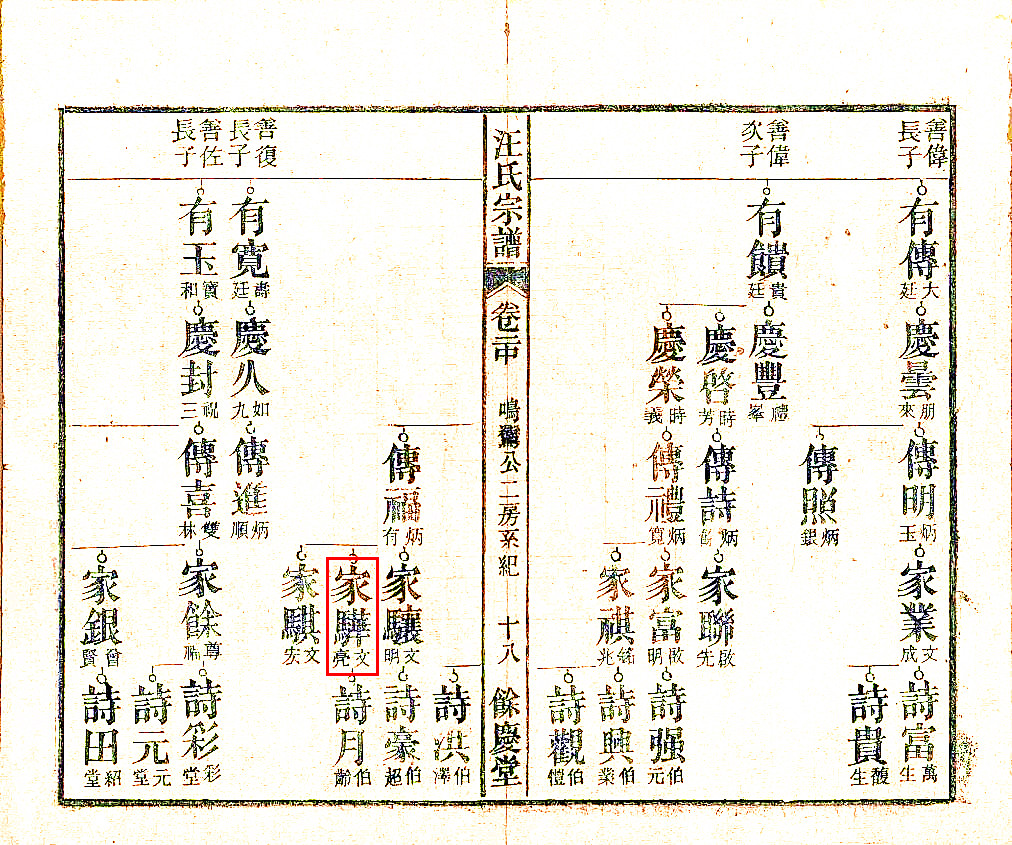 善偉長子
有傳 大廷
慶曇 朋來
傳明 炳玉
家業 文成
詩富 萬生
詩貴 馥生
傳照 炳銀
善偉次子
有饋 貴廷
慶豐 禮峯
慶啓 時芳
傳詩 炳
家聯 啟先
慶榮 時義
傳禮 炳寬
家富 啟明
詩强 伯元
家祺 銘兆
詩興 伯業
詩觀 伯愷
汪氏宗譜
卷二中
鳴珂公二房系紀
十八
餘慶堂
詩淇 伯澤
傳福 炳有
家驤 文明
詩豪 伯超
家驊 文亮
詩月 伯齡
家騏 文宏
善復長子
有寬 壽廷
慶八 如九
傳進 炳順
善佐長子
有玉 寶和
慶封 祝三
傳喜 雙林
家餘 尊
詩彩 彩堂
詩元 元堂
家銀 曾賢
詩田 紹堂